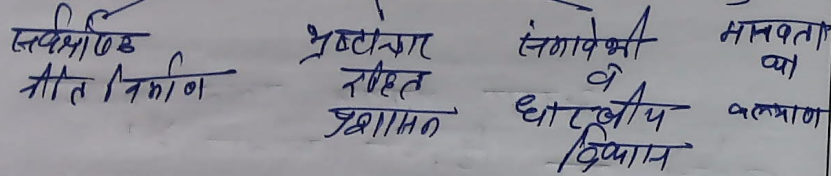 सर्वश्रेष्ठ
नीति निर्माण
भ्रष्टाचार
रहित
प्रशासन
समावेशी
व
धारणीय
विकास
मानवता
का
कल्याण